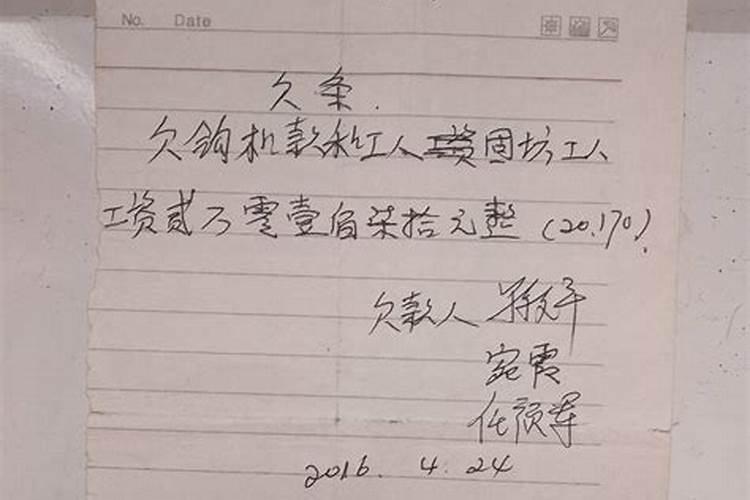 No. Date
欠条.
欠钩机款和工人工资固坊工人
工资贰万零壹佰柒拾元整（20.170）.
欠款人
宛霞
任颜军
2016. 4. 24